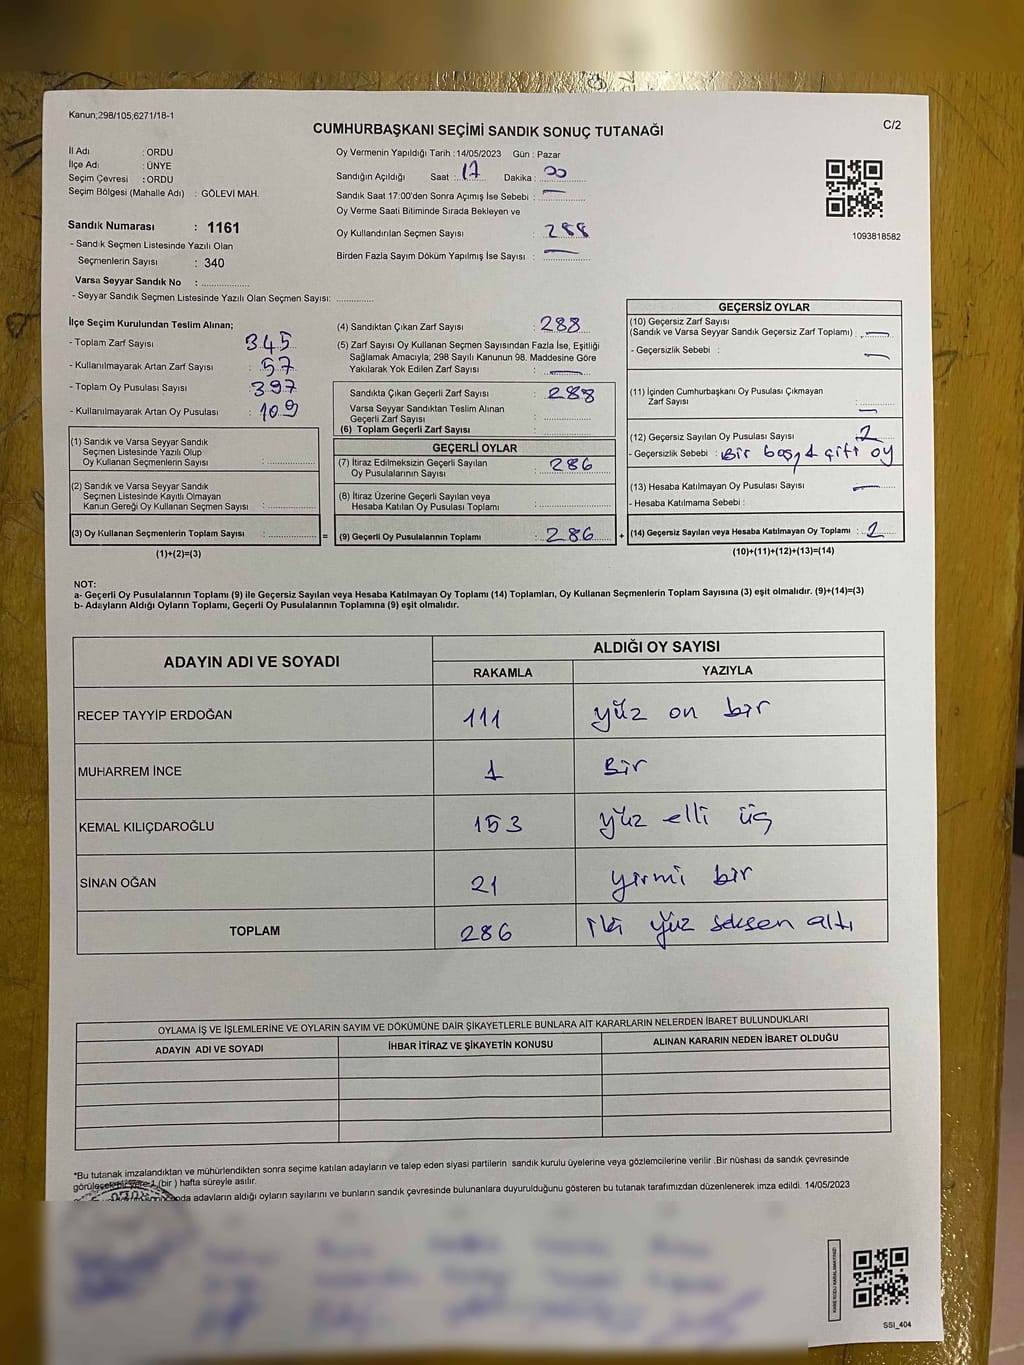 Kanun;298/105;6271/18-1
C/2
CUMHURBAŞKANI SEÇİMİ SANDIK SONUÇ TUTANAĞI
İl Adı : ORDU
İlçe Adı : ÜNYE
Seçim Çevresi : ORDU
Seçim Bölgesi (Mahalle Adı) : GÖLEVİ MAH.
Oy Vermenin Yapıldığı Tarih : 14/05/2023 Gün : Pazar
Sandığın Açıldığı Saat : 17 Dakika : 00
Sandık Saat 17:00'den Sonra Açımış İse Sebebi : —
Oy Verme Saati Bitiminde Sırada Bekleyen ve
Oy Kullandırılan Seçmen Sayısı : 288
Birden Fazla Sayım Döküm Yapılmış İse Sayısı : —
1093818582
Sandık Numarası : 1161
- Sandık Seçmen Listesinde Yazılı Olan
Seçmenlerin Sayısı : 340
Varsa Seyyar Sandık No : ..................
- Seyyar Sandık Seçmen Listesinde Yazılı Olan Seçmen Sayısı: ..............
İlçe Seçim Kurulundan Teslim Alınan;
- Toplam Zarf Sayısı : 345
- Kullanılmayarak Artan Zarf Sayısı : 57
- Toplam Oy Pusulası Sayısı : 397
- Kullanılmayarak Artan Oy Pusulası : 109
(1) Sandık ve Varsa Seyyar Sandık
Seçmen Listesinde Yazılı Olup
Oy Kullanan Seçmenlerin Sayısı :
(2) Sandık ve Varsa Seyyar Sandık
Seçmen Listesinde Kayıtlı Olmayan
Kanun Gereği Oy Kullanan Seçmen Sayısı :
(3) Oy Kullanan Seçmenlerin Toplam Sayısı :
(1)+(2)=(3)
=
(4) Sandıktan Çıkan Zarf Sayısı : 288
(5) Zarf Sayısı Oy Kullanan Seçmen Sayısından Fazla İse, Eşitliği
Sağlamak Amacıyla; 298 Sayılı Kanunun 98. Maddesine Göre
Yakılarak Yok Edilen Zarf Sayısı : —
Sandıkta Çıkan Geçerli Zarf Sayısı : 288
Varsa Seyyar Sandıktan Teslim Alınan
Geçerli Zarf Sayısı :
(6) Toplam Geçerli Zarf Sayısı :
GEÇERLİ OYLAR
(7) İtiraz Edilmeksizin Geçerli Sayılan
Oy Pusulalarının Sayısı : 286
(8) İtiraz Üzerine Geçerli Sayılan veya
Hesaba Katılan Oy Pusulası Toplamı :
(9) Geçerli Oy Pusulalarının Toplamı : 286
+
GEÇERSİZ OYLAR
(10) Geçersiz Zarf Sayısı
(Sandık ve Varsa Seyyar Sandık Geçersiz Zarf Toplamı) : —
- Geçersizlik Sebebi : —
(11) İçinden Cumhurbaşkanı Oy Pusulası Çıkmayan
Zarf Sayısı : —
(12) Geçersiz Sayılan Oy Pusulası Sayısı : 2
- Geçersizlik Sebebi : Bir boş, 1 çift oy
(13) Hesaba Katılmayan Oy Pusulası Sayısı : —
- Hesaba Katılmama Sebebi :
(14) Geçersiz Sayılan veya Hesaba Katılmayan Oy Toplamı : 2
(10)+(11)+(12)+(13)=(14)
NOT:
a- Geçerli Oy Pusulalarının Toplamı (9) ile Geçersiz Sayılan veya Hesaba Katılmayan Oy Toplamı (14) Toplamları, Oy Kullanan Seçmenlerin Toplam Sayısına (3) eşit olmalıdır. (9)+(14)=(3)
b- Adayların Aldığı Oyların Toplamı, Geçerli Oy Pusulalarının Toplamına (9) eşit olmalıdır.
ADAYIN ADI VE SOYADI
ALDIĞI OY SAYISI
RAKAMLA YAZIYLA
RECEP TAYYİP ERDOĞAN 111 yüz on bir
MUHARREM İNCE 1 Bir
KEMAL KILIÇDAROĞLU 153 yüz elli üç
SİNAN OĞAN 21 yirmi bir
TOPLAM 286 iki yüz seksen altı
OYLAMA İŞ VE İŞLEMLERİNE VE OYLARIN SAYIM VE DÖKÜMÜNE DAİR ŞİKAYETLERLE BUNLARA AİT KARARLARIN NELERDEN İBARET BULUNDUKLARI
ADAYIN ADI VE SOYADI İHBAR İTİRAZ VE ŞİKAYETİN KONUSU ALINAN KARARIN NEDEN İBARET OLDUĞU
*Bu tutanak imzalandıktan ve mühürlendikten sonra seçime katılan adayların ve talep eden siyasi partilerin sandık kurulu üyelerine veya gözlemcilerine verilir .Bir nüshası da sandık çevresinde
(bir ) hafta süreyle asılır.
adayların aldığı oyların sayılarını ve bunların sandık çevresinde bulunanlara duyurulduğunu gösteren bu tutanak tarafımızdan düzenlenerek imza edildi. 14/05/2023
KARE KODU KARALAMAYINIZ!
SSI_404